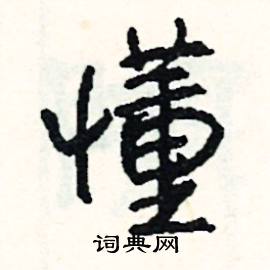 懂
词典网